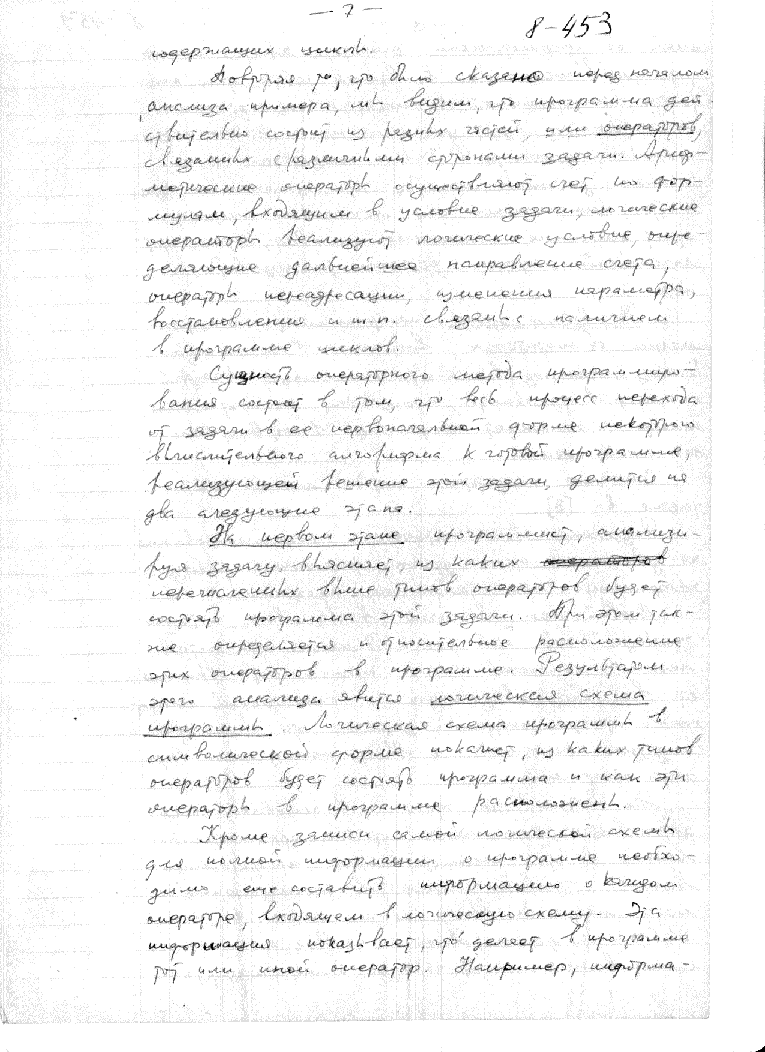 — 7 —
8-453
содержащих циклы.
Повторяя то, что было сказано перед началом
анализа примера, мы видим, что программа дей-
ствительно состоит из разных частей, или операторов,
связанных с различными сторонами задачи. Ариф-
метические операторы осуществляют счет по фор-
мулам, входящим в условие задачи, логические
операторы реализуют логические условие, опре-
деляющие дальнейшее направление счета,
операторы переадресации, изменения параметра,
восстановления и т.п. связаны с наличием
в программе циклов.
Сущность операторного метода программиро-
вания состоит в том, что весь процесс перехода
от задачи в ее первоначальной форме некоторого
вычислительного алгорифма к готовой программе,
реализующей решение этой задачи, делится на
два следующие этапа.
На первом этапе программист, анализи-
руя задачу, выясняет, из каких операторов
перечисленных выше типов операторов будет
состоять программа этой задачи. При этом так-
же определяется и относительное расположение
этих операторов в программе. Результатом
этого анализа явится логическая схема
программы. Логическая схема программы в
символической форме покажет, из каких типов
операторов будет состоять программа и как эти
операторы в программе расположены.
Кроме записи самой логической схемы
для полной информации о программе необхо-
димо еще составить информацию о каждом
операторе, входящем в логическую схему. Эта
информация показывает, что делает в программе
тот или иной оператор. Например, информа-